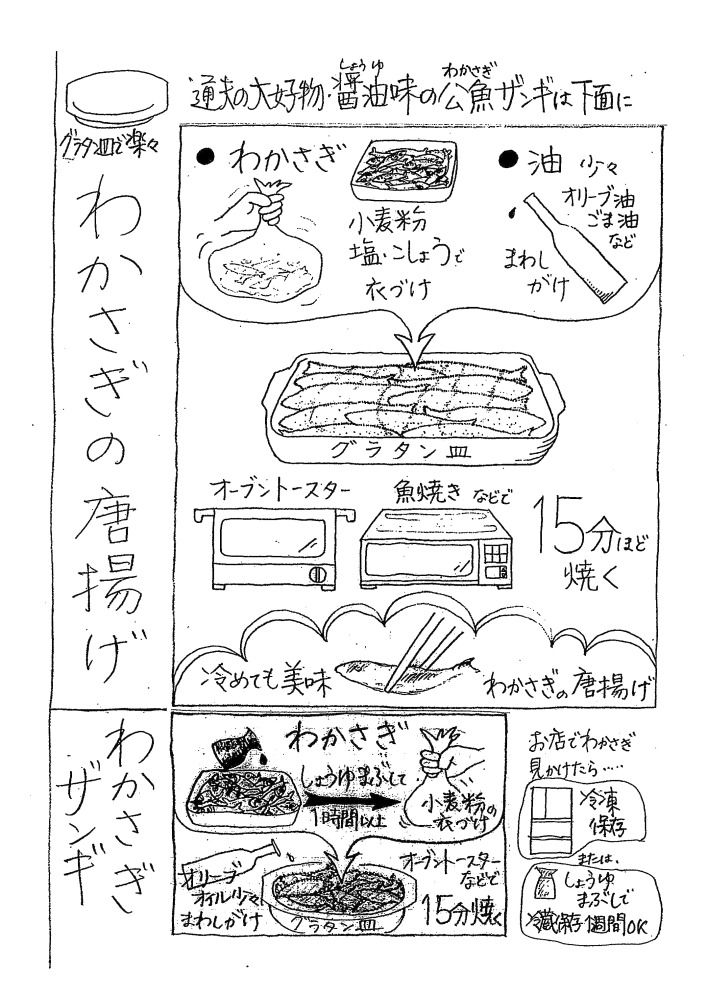 通夫の大好物・醤油味の公魚ザンギは下面に
しょうゆ
わかさぎ
グラタン皿で楽々
わかさぎの唐揚げ
● わかさぎ
小麦粉
塩・こしょうで
衣づけ
● 油 少々
オリーブ油
ごま油
など
まわし
がけ
グラタン皿
オーブントースター
魚焼き などで
15分ほど
焼く
冷めても美味
わかさぎの唐揚げ
わかさぎ
ザンギ
わかさぎ
しょうゆまぶして
1時間以上
小麦粉の
衣づけ
オリーブ
オイル少々
まわしがけ
グラタン皿
オーブントースター
などで
15分焼く
お店でわかさぎ
見かけたら……
冷凍
保存
または、
しょうゆ
まぶして
冷蔵保存1週間OK